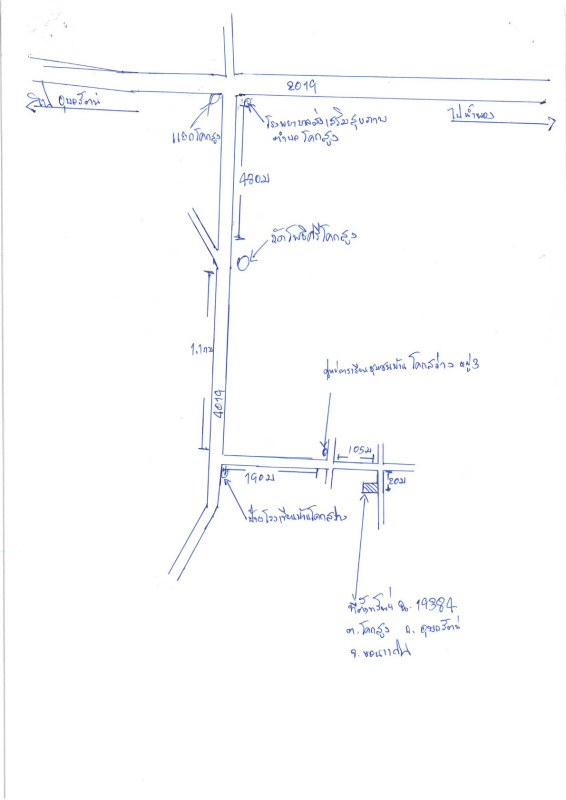 2019
ไป อุบลรัตน์
ไปน้ำพอง
แยกโคกสูง
โรงพยาบาลส่งเสริมสุขภาพ
ตำบลโคกสูง
480ม
วัดโพธิ์ศรีโคกสูง
1.1กม
ศูนย์การเรียนชุมชนบ้านโคกสว่าง หมู่3
4019
105ม
190ม
20ม
ป้ายโรงเรียนบ้านโคกสว่าง
ที่ตั้งทรัพย์ ฉ.19384
ต.โคกสูง อ.อุบลรัตน์
จ.ขอนแก่น